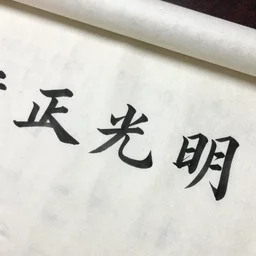 正光明